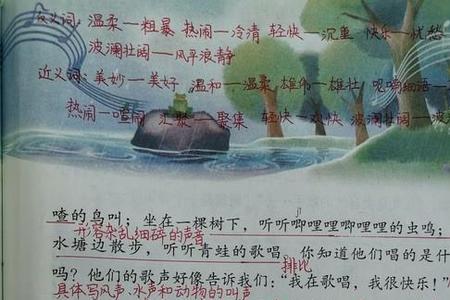 反义词：温柔—粗暴 热闹—冷清 轻快—沉重 快乐—忧愁
波澜壮阔—风平浪静
近义词：美妙—美好 温和—温柔 雄伟—雄壮 呢喃细语—
热闹—喧闹 汇聚—聚集 轻快—欢快 波澜壮阔—波
喳的鸟叫；坐在一棵树下，听听唧哩哩唧哩哩的虫鸣；
形容杂乱细碎的声音
水塘边散步，听听青蛙的歌唱。你知道他们唱的是什
排比
吗？他们的歌声好像告诉我们：“我在歌唱，我很快乐！”
具体写风声、水声和动物的叫声